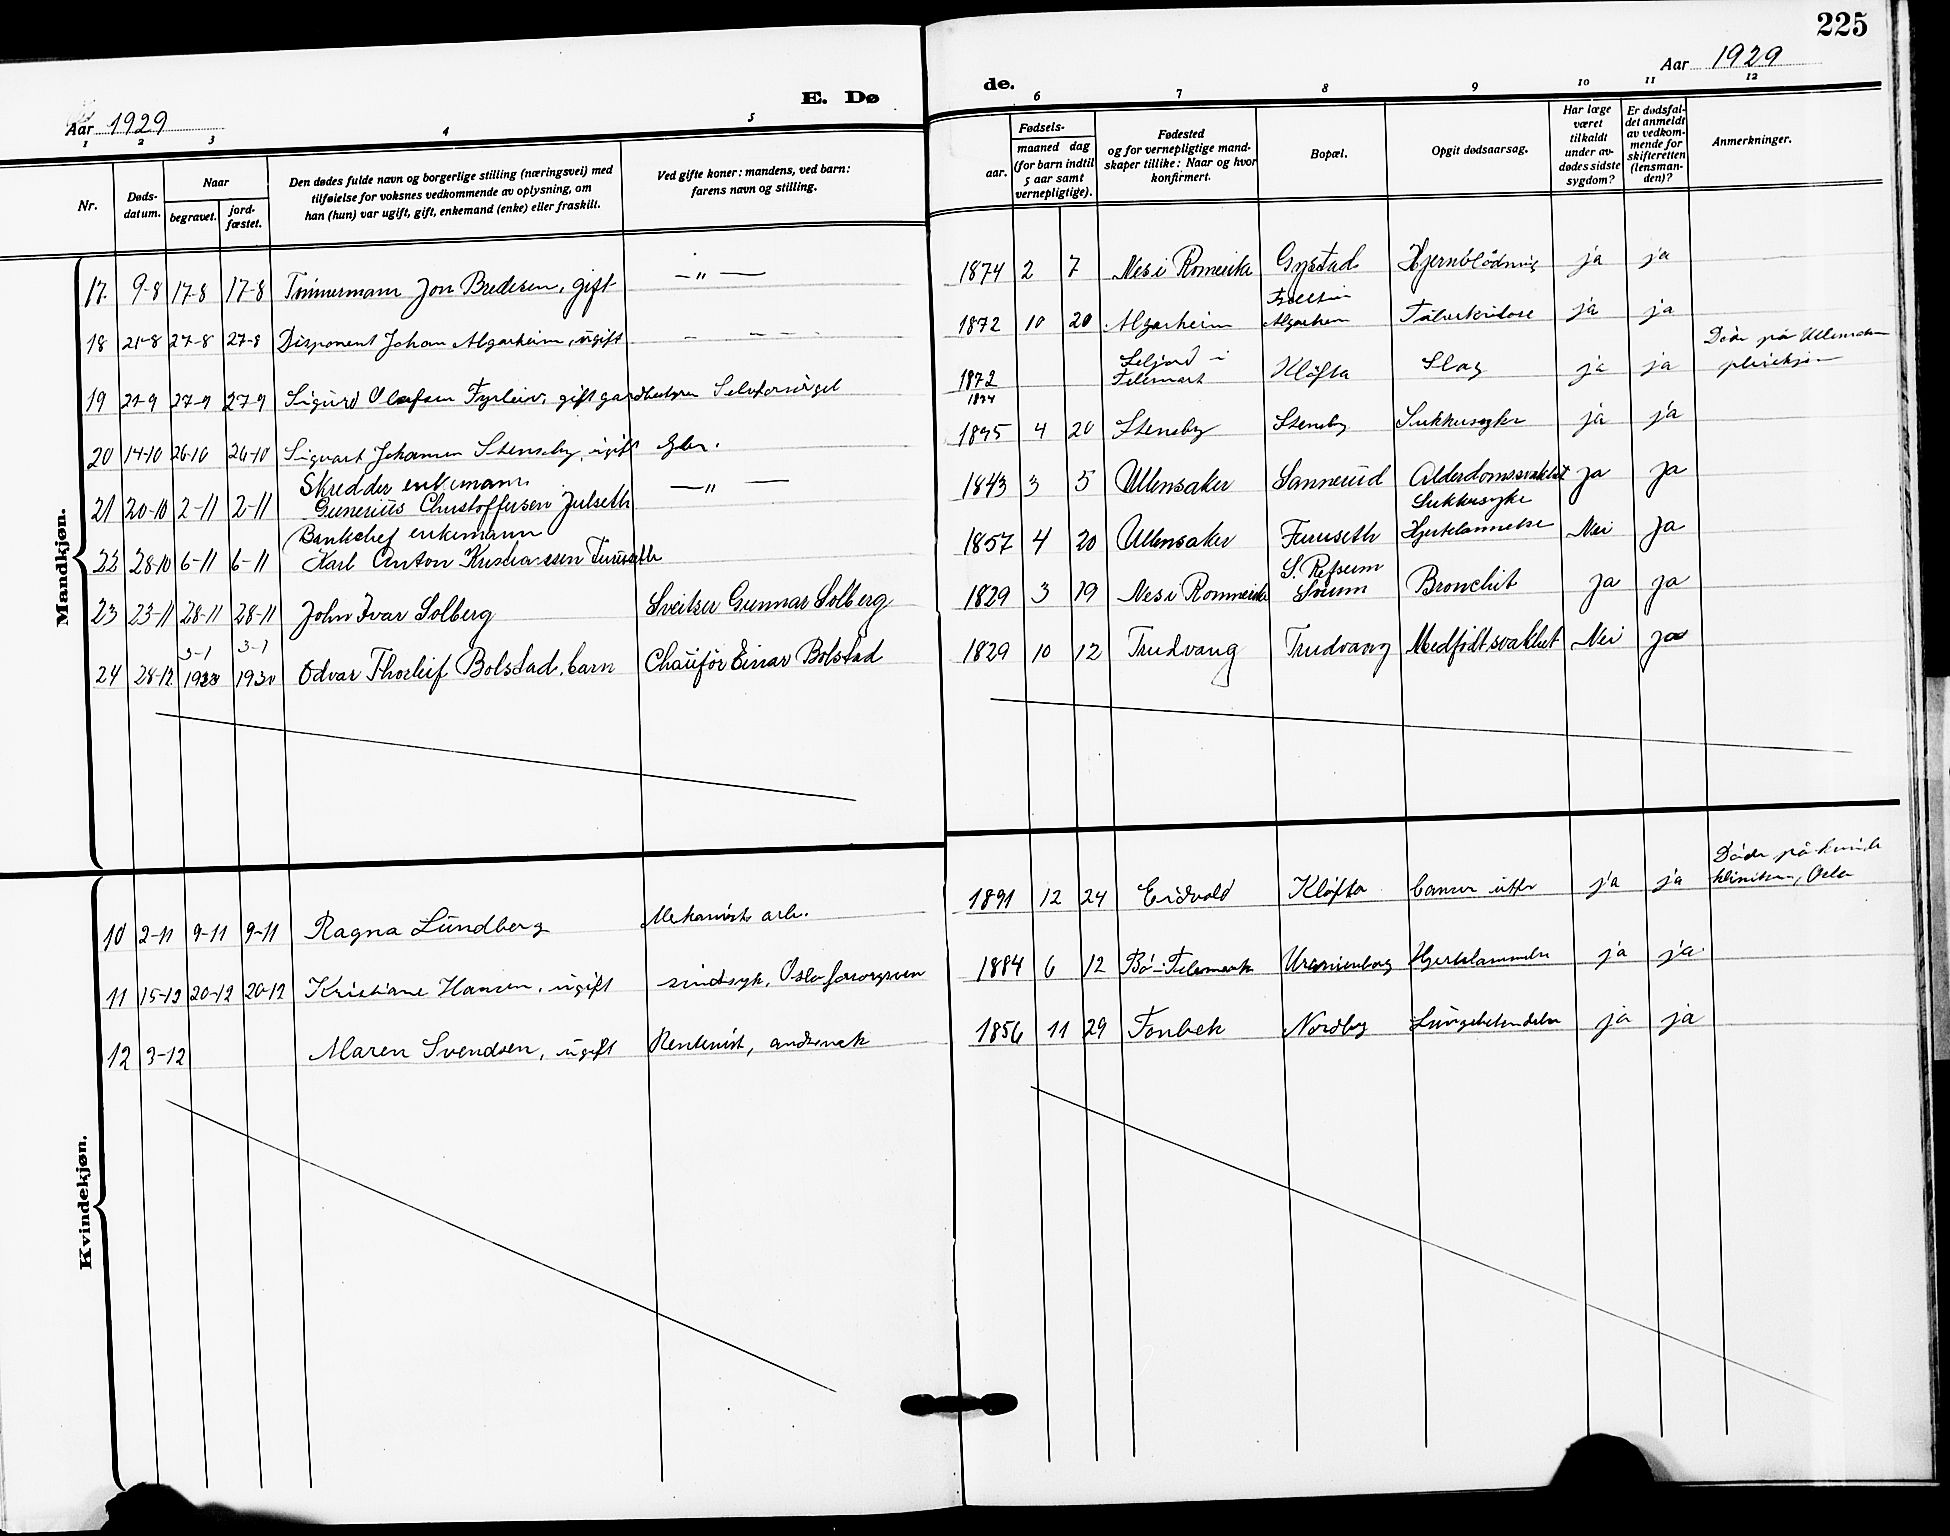 225
Aar 1929
E. Dø
de.
Aar 1929
1 2 3 4 5 6 7 8 9 10 11 12
Nr.
Døds-
datum.
Naar
begravet.
jord-
fæstet.
Den dødes fulde navn og borgerlige stilling (næringsvei) med
tilføielse for voksnes vedkommende av oplysning, om
han (hun) var ugift, gift, enkemand (enke) eller fraskilt.
Ved gifte koner: mandens, ved barn:
farens navn og stilling.
Fødsels-
aar.
maaned dag
(for barn indtil
5 aar samt
vernepligtige).
Fødested
og for vernepligtige mand-
skaper tillike: Naar og hvor
konfirmert.
Bopæl.
Opgit dødsaarsag.
Har læge
været
tilkaldt
under av-
dødes sidste
sygdom?
Er dødsfal-
det anmeldt
av vedkom-
mende for
skifteretten
(lensman-
den)?
Anmerkninger.
Mandkjøn.
17. 9-8 17-8 17-8 Tømmermann Jon Bredesen, gift — " — 1874 2 7 Nes i Romerike Gystad Hjernblødning ja ja
18 21-8 27-8 27-8 Disponent Johan Algarheim, ugift - - - - 1872 10 20 Algarheim Algarheim ja ja
19 21-9 27-9 27-9 Sigurd Olafsen Fyrleiv, gift gardbestyrer Selvforsørget 1872 Seljord i
Telemark Kløfta Slag ja ja Døde på Ullensaker
pleiehjem
1874
20 14-10 26-10 26-10 Sigvart Johannes Stensby, ugift 1895 4 20 Stensby Stensby Sukkersyke ja ja
Skredder enkemann
21 20-10 2-11 2-11 Gunerius Christoffersen Julseth — " — 1843 3 5 Ullensaker Sannerud Alderdomssvakhet ja ja
Sukkersyke
Bankchef enkemann
22 28-10 6-11 6-11 Karl Anton Kristiansen Furuseth 1857 4 20 Ullensaker Furuseth Hjertelammelse Nei ja
23 23-11 28-11 28-11 John Ivar Solberg Sveitser Gunnar Solberg 1829 3 19 Nes i Romerike S. Refsum
Bronchit ja ja
3-1 3-1
24 28-12 1930 1930 Odvar Thorleif Bolstad, barn Chauffør Einar Bolstad 1829 10 12 Trudvang Trudvang Medfødt svakhet Nei ja
Kvindekjøn.
10 2-11 9-11 9-11 Ragna Lundberg Mekanisk arb. 1891 12 24 Eidvold Kløfta Cancer uteri ja ja Døde på kvinde
klinikken, Oslo
11 15-12 20-12 20-12 Kristiane Hansen, ugift sindssyk, Oslo forsorgsven 1884 6 12 Bø i Telemark Uranienborg Hjertelammelse ja ja
12 3-12 Maren Svendsen, ugift Rentenist, andssvak 1856 11 29 Fonbek Nordby Lungebetendelse ja ja